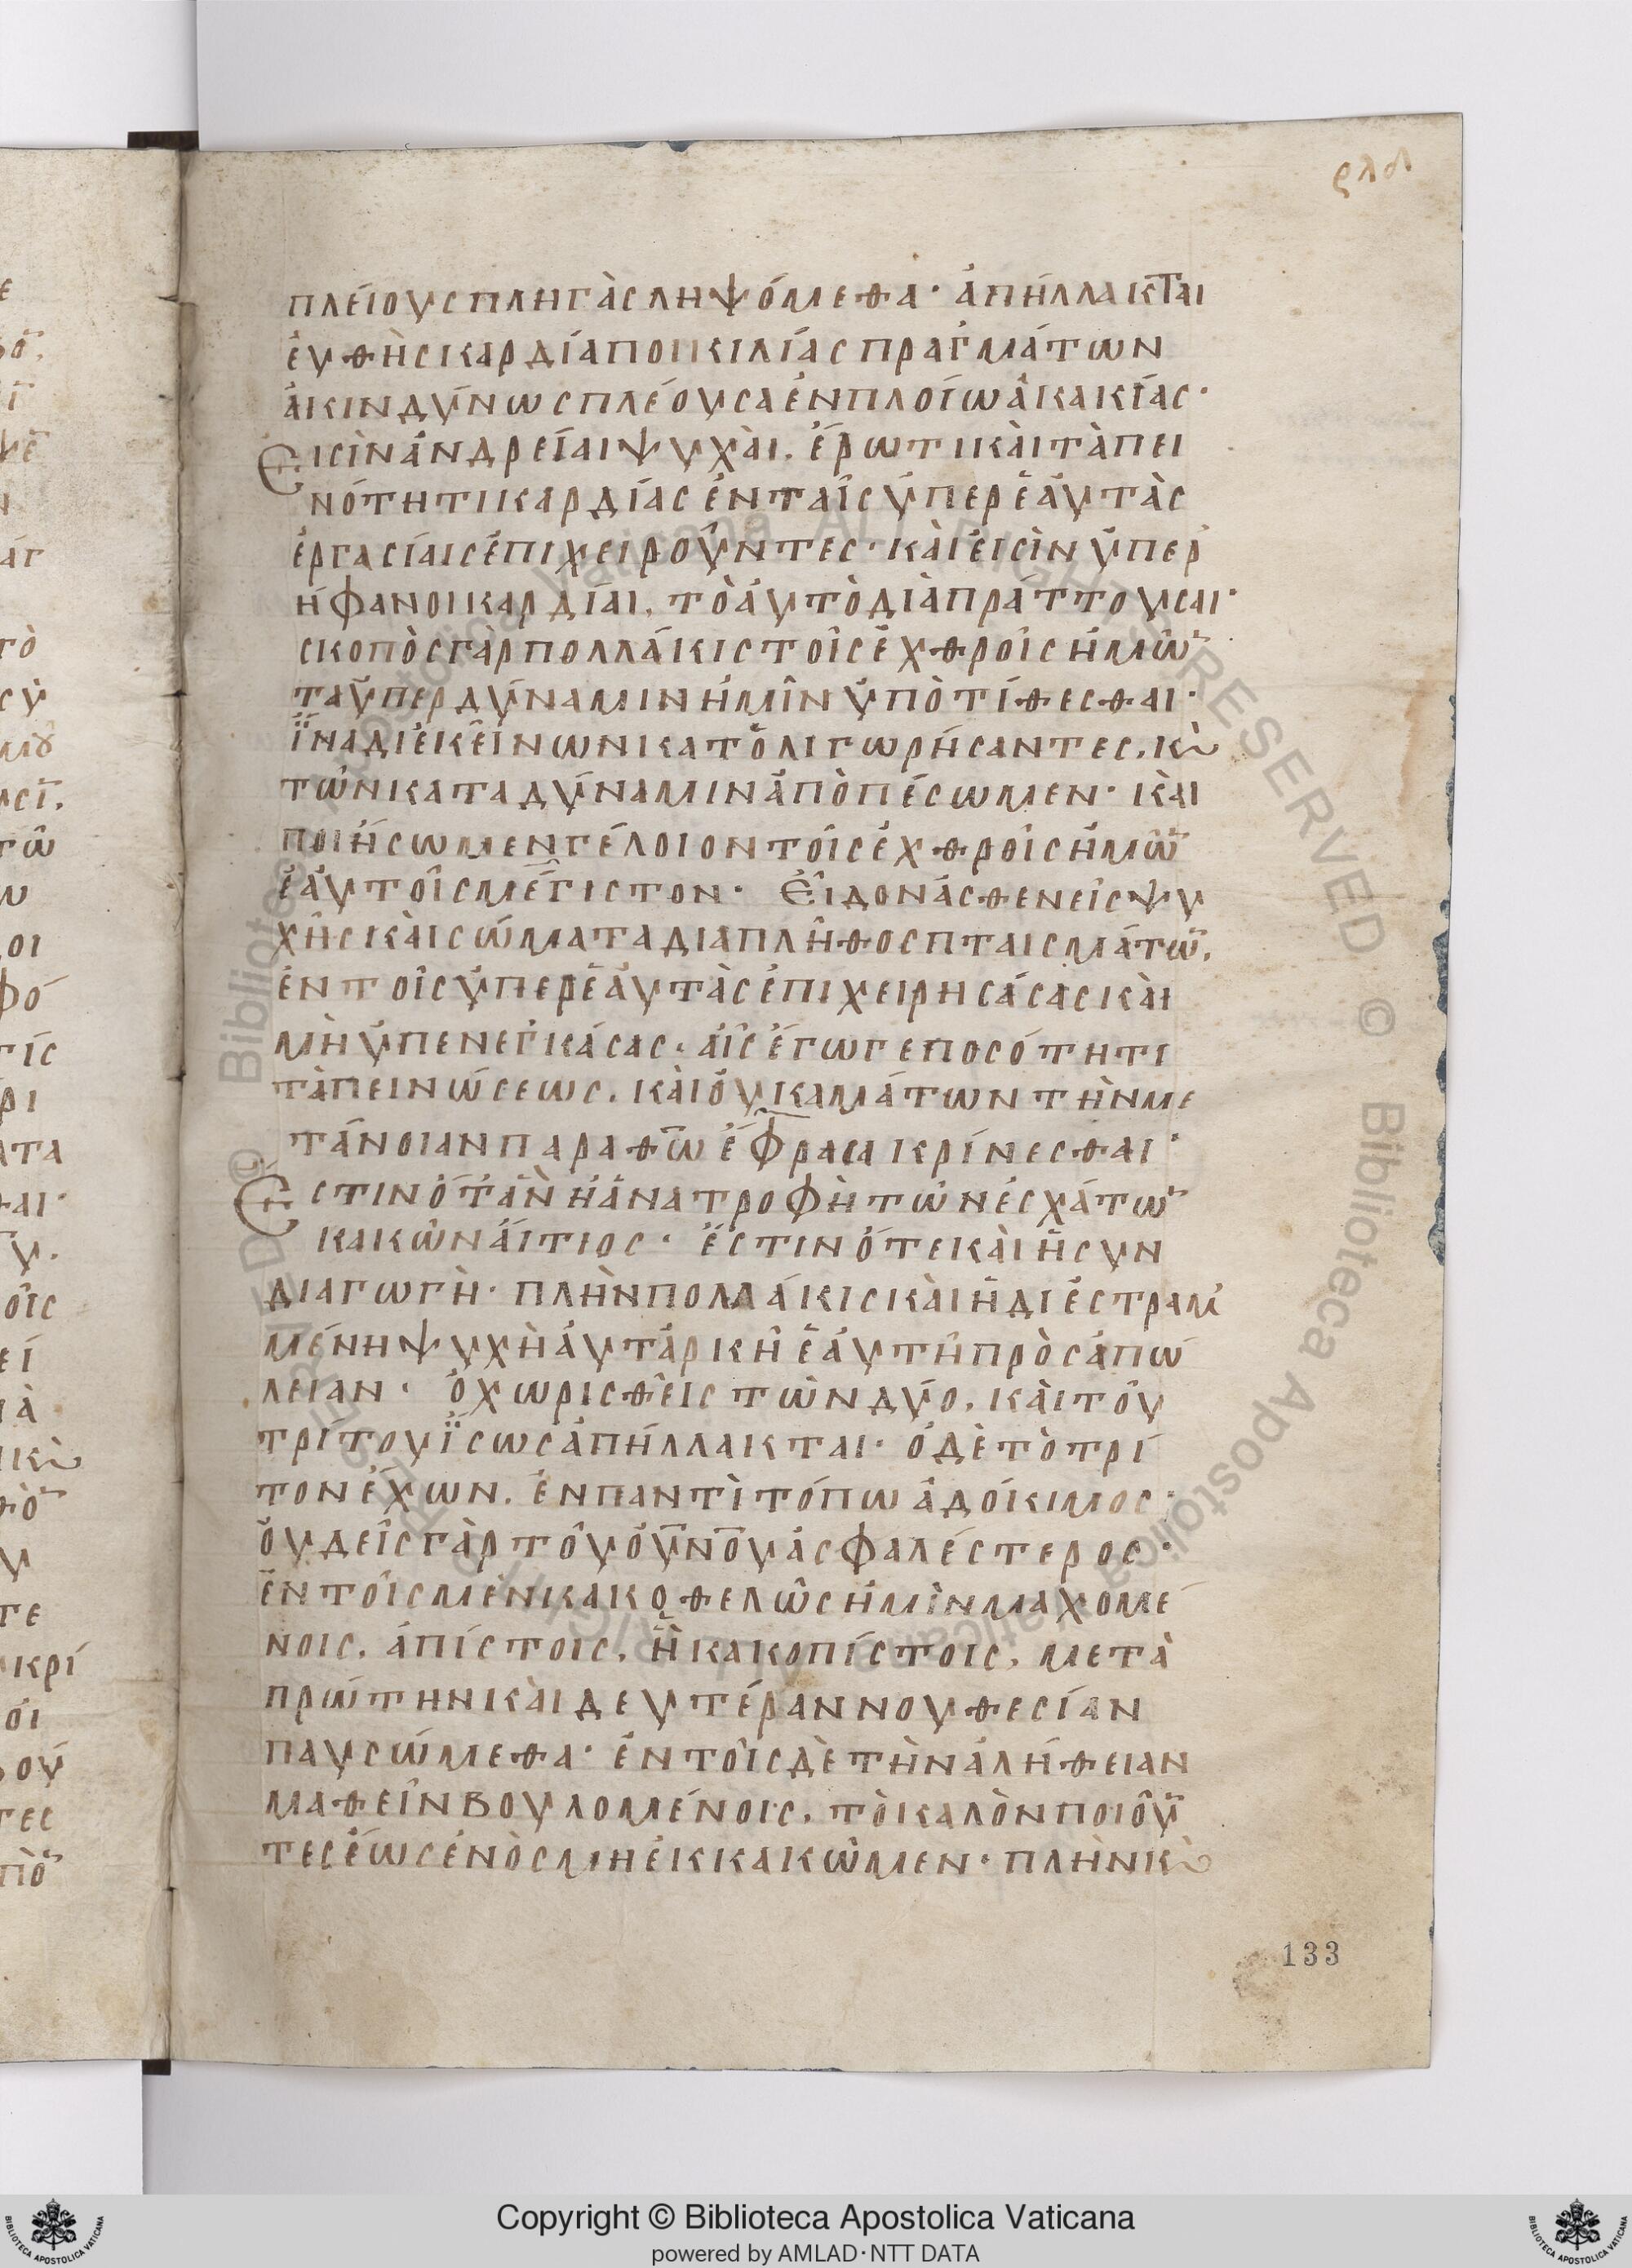 ρλδ
πλείους πληγὰς ληψόμεθα· ἀπήλλακται
ἐυθὴς καρδία ποικιλίας πραγμάτων
ἀκινδύνως πλέουσα ἐν πλοίω ἀκακίας·
Εἰσὶν ἀνδρεῖαι ψυχὰι. ἔρωτι κὰι τὰπει
νότητι καρδίας ἐν ταῖς ὑπερ ἑἀυτὰς
ἐργασίαις ἐπιχειροῦντες· κὰι ἐισὶν ὑπερ
ήφανοι καρδίαι, τὸ ἀυτὸ διὰπράττουσαι·
σκοπὸς γὰρ πολλάκις τοῖς ἐχθροῖς ἡμῶ̅
τα ὑπερ δύναμιν ἡμῖν ὑπὸτίθεσθαι·
ἵνα δι ἐκείνων κατὀλιγωρήσαντες, κ̀
τῶν κατα δύναμιν ἀπὸπέσωμεν· κὰι
ποιήσωμεν γέλοιον τοῖς ἐχθροῖς ἡμῶ̅
ἑἀυτοῖς μέγιστον· Εἶδον ἀσθενεῖς ψυ
χῆς κὰι σώματα δια πλῆθος πταισμάτω̅,
ἐν τοῖς ὑπερ ἑἀυτὰς ἐπιχειρησάσας κὰι
μὴ ὑπενεγκάσας· ἁῖς ἔγωγε ποσότητι
τὰπεινώσεως, κὰι ὀυ καμάτων τὴν με
τάνοιαν παρα θ̅ω̅ ἔφρασα κρίνεσθαι·
Εστιν ὅτ ἀν ἡ ἀνατροφὴ τῶν ἐσχάτω̅
κακῶν ἄιτιος· ἔστιν ὅτε κὰι ἡ συν
διαγωγὴ· πλὴν πολλάκις κὰι ἡ διἐστραμ
μένη ψυχὴ ἀυτάρκῆ ἑἀυτῆ πρὸς ἀπώ
λειαν· ὁ χωρισθεὶς τῶν δύο, κὰι τοῦ
τρίτου ἴσως ἀπήλλακται· ὁ δὲ τὸ τρί
τον ἔχων, ἐν παντὶ τόπω ἀδόκιμος·
ὀυδεὶς γὰρ τοῦ ο̅υ̅ν̅ο̅υ̅ ἀσφαλέστερος·
ἐν τοῖς μὲν κακοθελῶς ἡμὶν μαχομέ
νοις, ἀπίστοις, ἢ κακοπίστοις, μετὰ
πρώτην κὰι δευτέραν νουθεσίαν
παυσώμεθα· ἐν τοῖς δὲ τὴν ἀλήθειαν
μαθεῖν βουλομένοις, τὸ καλὸν ποιοῦ̅
τες ἕως ἑνὸς μη ἐκκακῶμεν· πλὴν κ̀
133
Copyright © Biblioteca Apostolica Vaticana
powered by AMLAD·NTT DATA